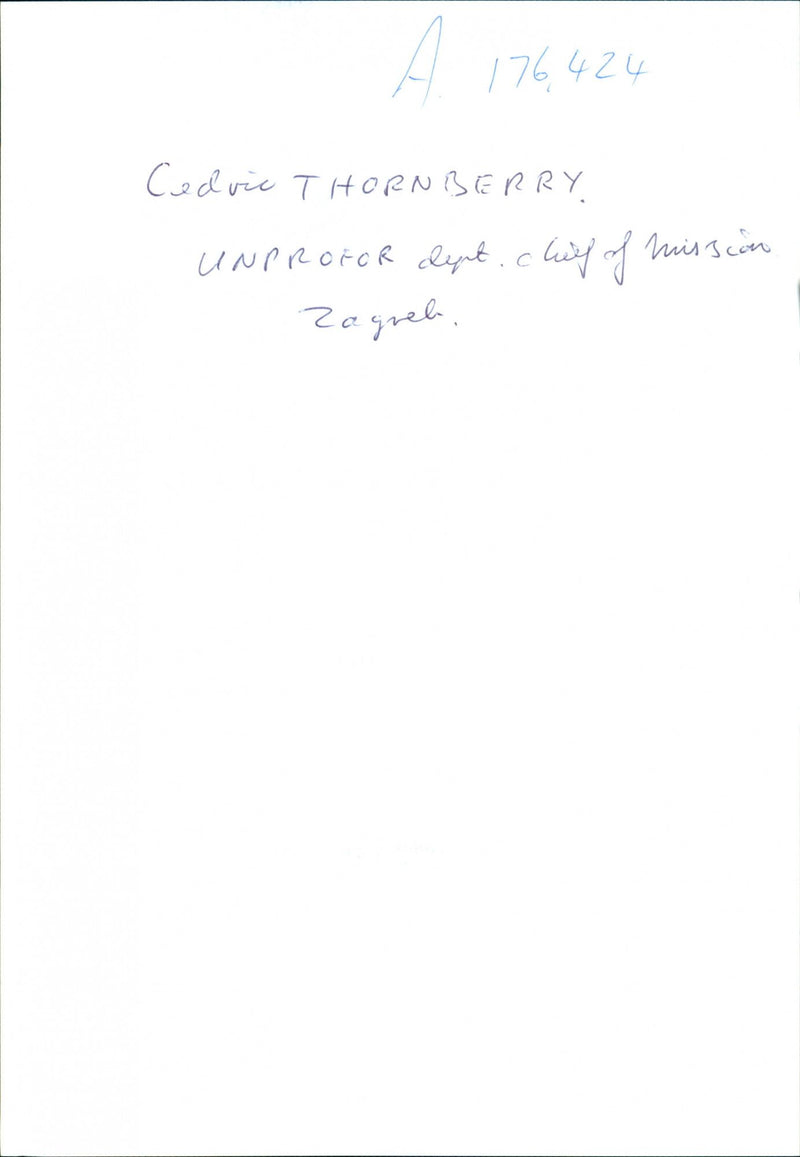 A. 176,424
Cedric THORNBERRY.
UNPROFOR dept. chief of Mission
Zagreb.